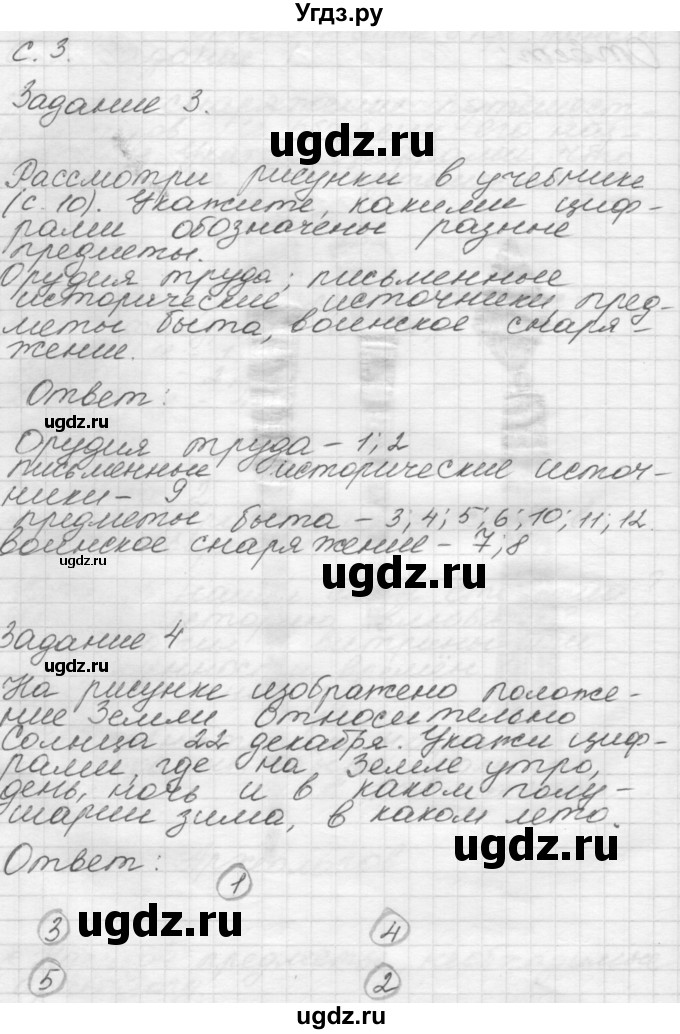 Угдз.ру
с. 3.
Задание 3.
ugdz.ru
Рассмотри рисунки в учебнике
(с. 10). Укажите, какими циф-
рами обозначены разные
предметы.
Орудия труда; письменные
исторические источники, пред-
меты быта, воинское снаря-
жение.
Ответ:
ugdz.ru
Орудия труда - 1; 2
письменные исторические источ-
ники - 9
предметы быта - 3; 4; 5; 6; 10; 11; 12.
воинское снаряжение - 7; 8
ugdz.ru
ugdz.ru
Задание 4
ugdz.ru
На рисунке изображено положе-
ние Земли относительно
Солнца 22 декабря. Укажи циф-
рами, где на Земле утро,
день, ночь и в каком полу-
шарии зима, в каком лето.
ugdz.ru
Ответ:
1
3 ugdz.ru 4
5 2
ugdz.ru